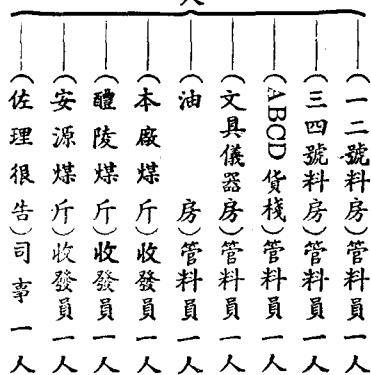 人
（一二號料房）管料員一人
（三四號料房）管料員一人
（ABCD貨棧）管料員一人
（文具儀器房）管料員一人
（油房）管料員一人
（本廠煤斤）收發員一人
（醴陵煤斤）收發員一人
（安源煤斤）收發員一人
（佐理很告）司事一人